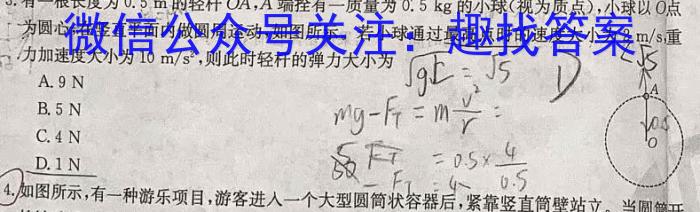 3.有一根长度为0.5 m的轻杆OA,A端拴有一质量为0.5 kg的小球(视为质点),小球以O点
为圆心,在竖直平面内做圆周运动,如图所示。若小球通过最高点时的速度大小为2 m/s,重
微信公众号关注:趣找答案
力加速度大小为10 m/s²,则此时轻杆的弹力大小为
A. 9 N
B. 5 N
C. 4 N
D. 1 N
√gL = √5
D
mg-F_T = m v²/r =
= 0.5 × 4/0.5
- F_T = 4
√5
A
0.5
O
4.如图所示,有一种游乐项目,游客进入一个大型圆筒状容器后,紧靠竖直筒壁站立。当圆筒开